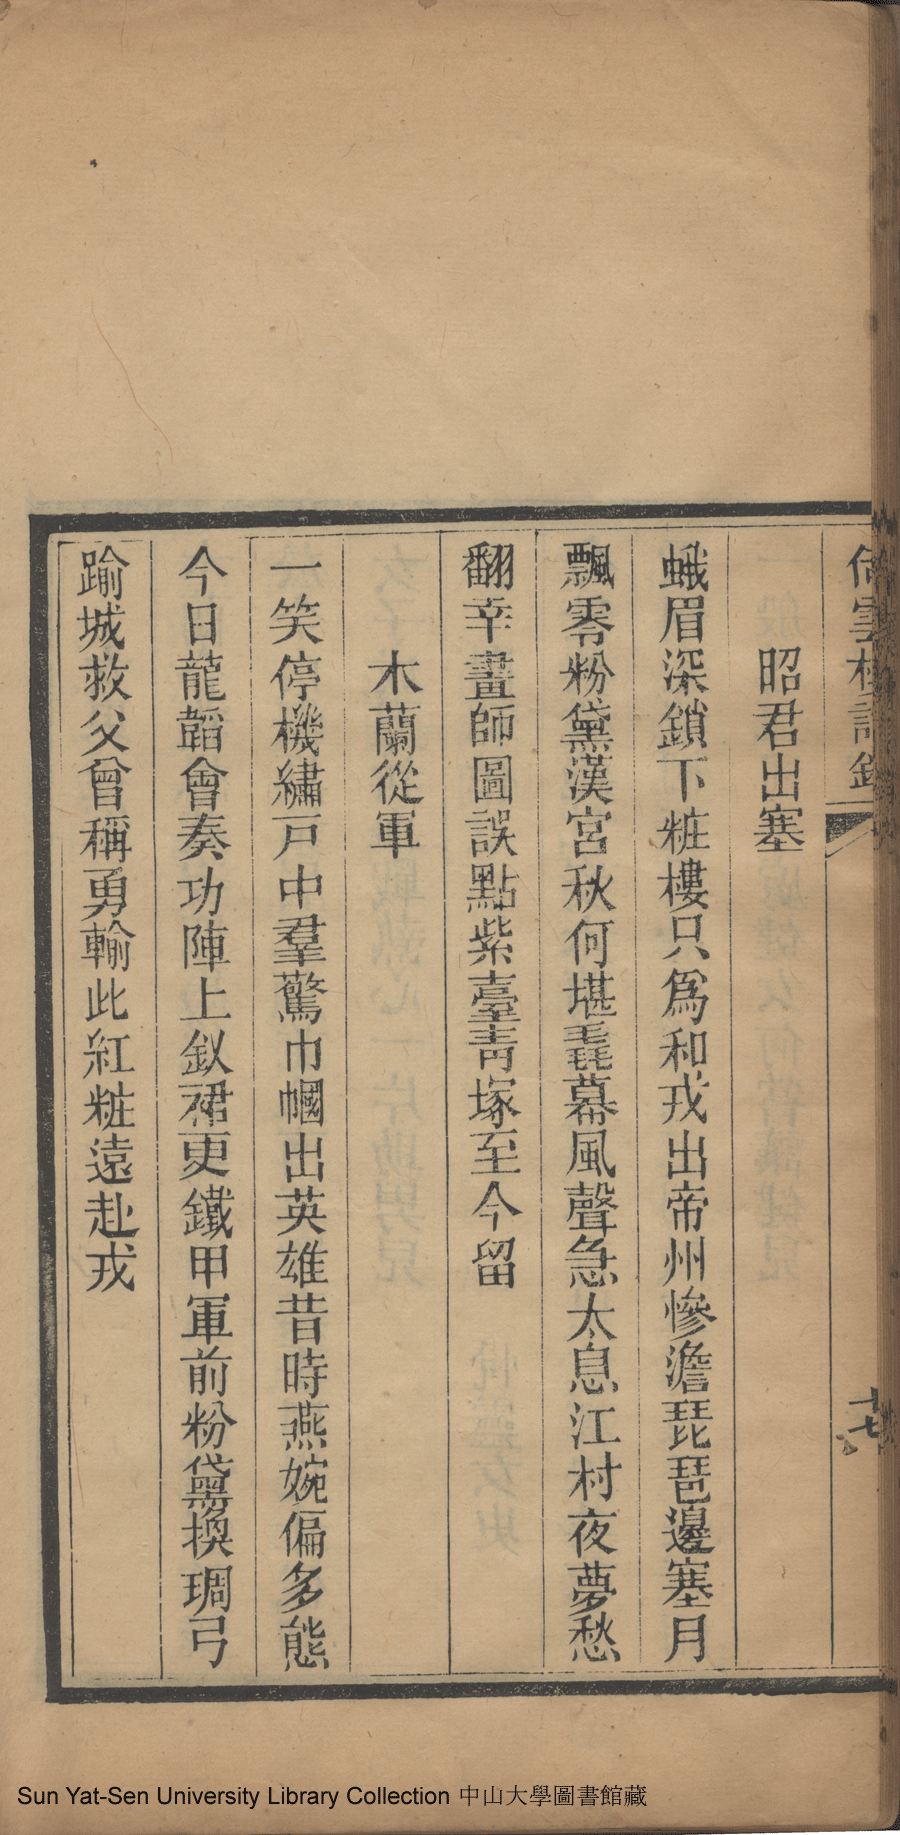 昭君出塞
蛾眉深鎖下粧樓只為和戎出帝州慘澹琵琶邊塞月
飄零粉黛漢宮秋何堪毳幕風聲急太息江村夜夢愁
翻幸畫師圖誤點紫臺青塚至今留
木蘭從軍
一笑停機繡戸中羣驚巾幗出英雄昔時燕婉偏多態
今日龍韜會奏功陣上釵裙更鐵甲軍前粉黛換琱弓
踰城救父曾稱勇輸此紅粧遠赴戎
十七
Sun Yat-Sen University Library Collection 中山大學圖書館藏